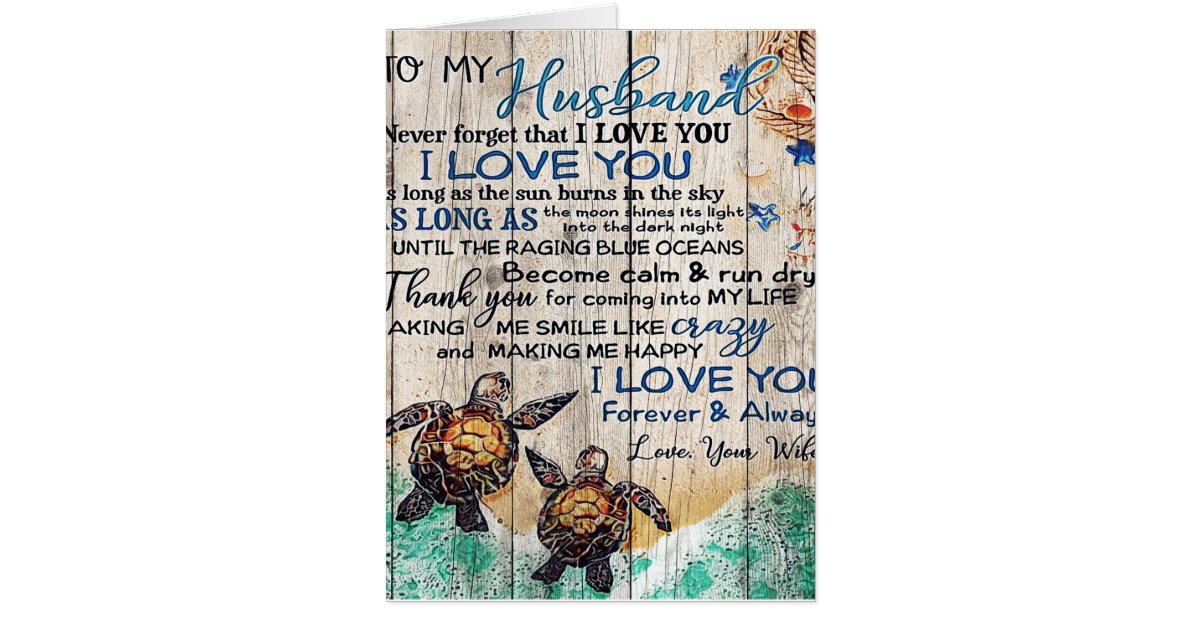 TO MY Husband
Never forget that I LOVE YOU
I LOVE YOU
s long as the sun burns in the sky
AS LONG AS the moon shines its light
into the dark night
UNTIL THE RAGING BLUE OCEANS
Become calm & run dry
Thank you for coming into MY LIFE
AKING ME SMILE LIKE crazy
and MAKING ME HAPPY
I LOVE YOU
Forever & Alway
Love, Your Wife